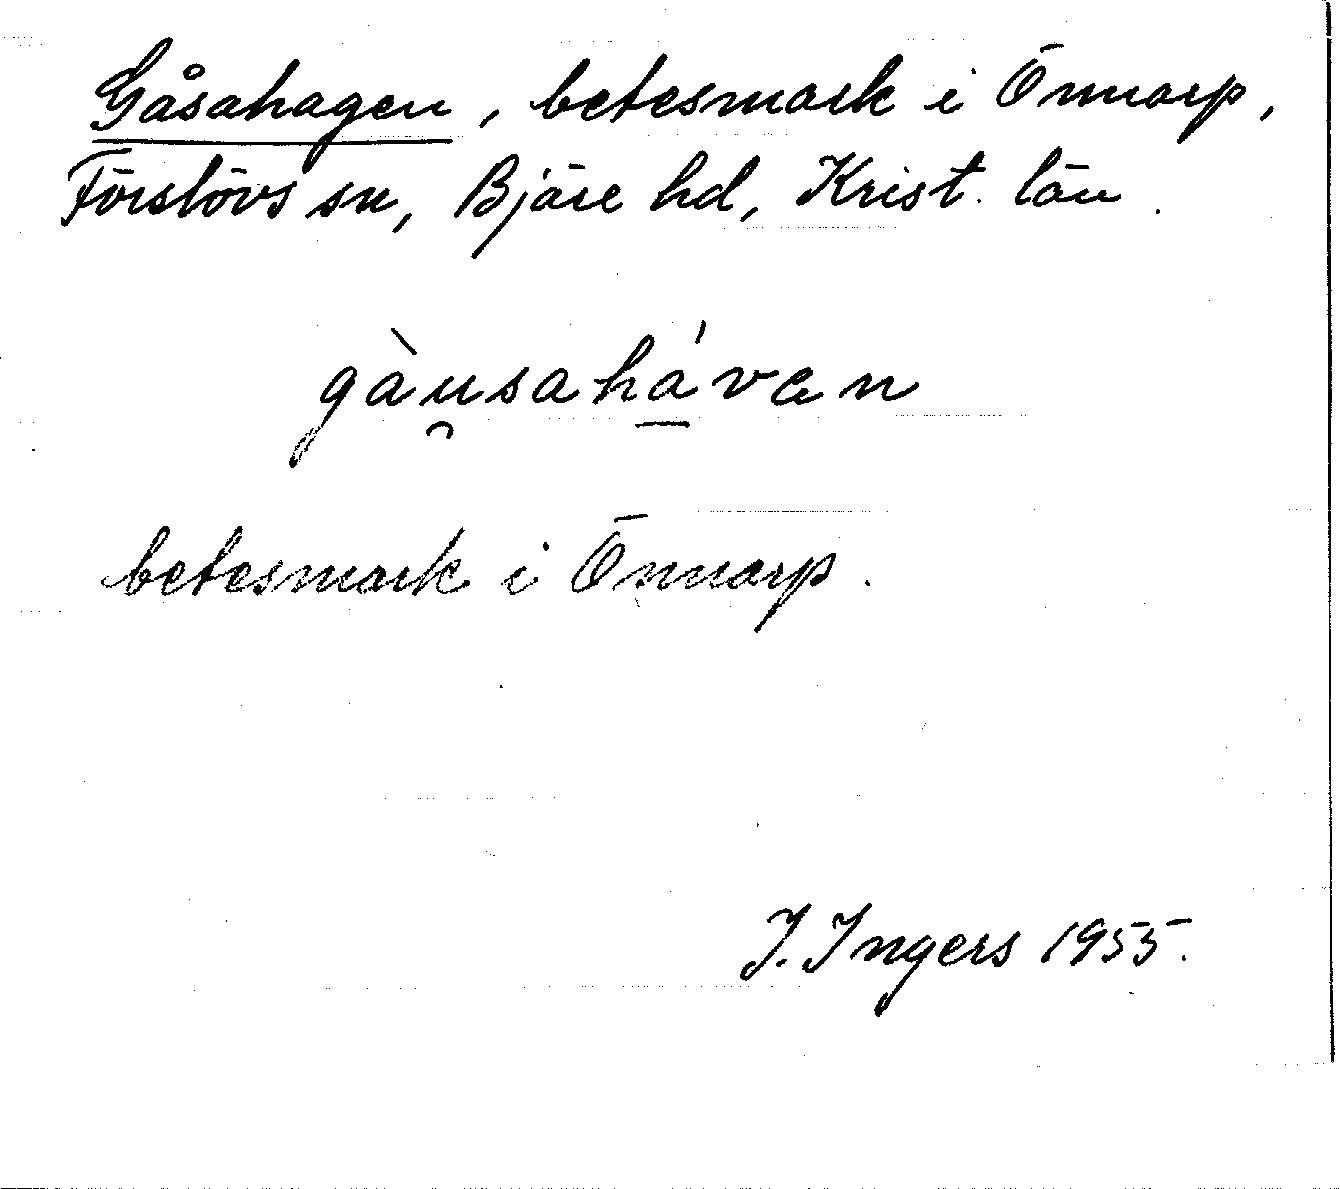 Gåsahagen, betesmark i Önnarp,
Förslövs sn, Bjäre hd, Krist. län.
gàu̯sahá̱vαn
betesmark i Önnarp.
I. Ingers 1955.